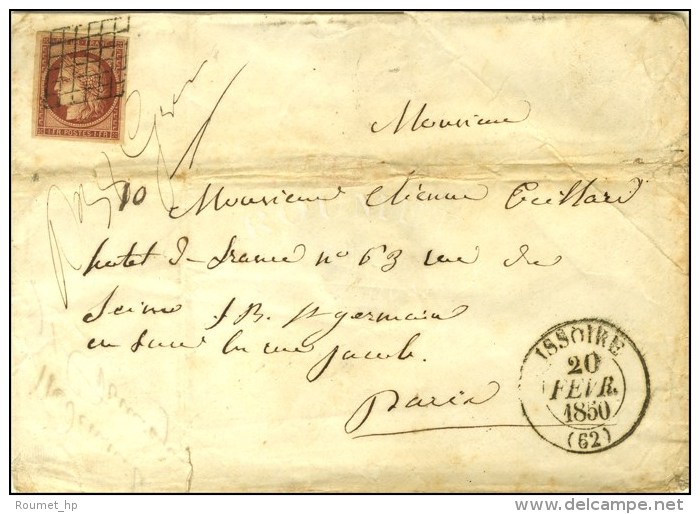 1 FR. POSTES 1 FR.
Monsieur
10 Monsieur Etienne
hotel de france n° 63 rue de
Seine f B. St germain
en face la rue Jacob.
Paris
ISSOIRE
20
FEVR.
1850
(62)
© Roumet_hp
delcampe.net